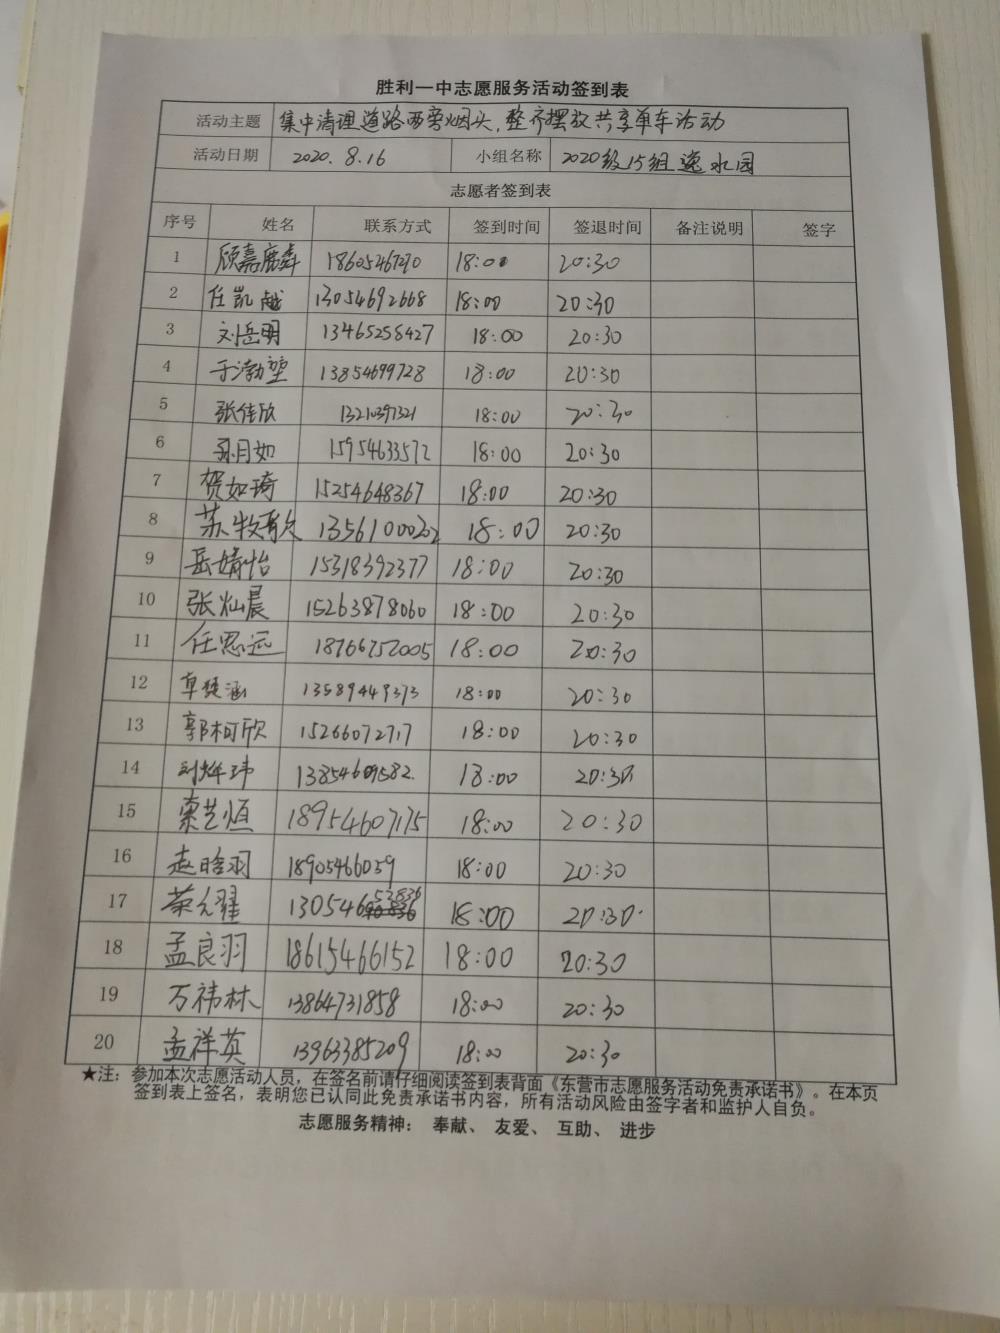 胜利一中志愿服务活动签到表
活动主题 集中清理道路两旁烟头,整齐摆放共享单车活动
活动日期 2020.8.16 小组名称 2020级15组逸水园
志愿者签到表
序号 姓名 联系方式 签到时间 签退时间 备注说明 签字
1 顾嘉麟 18:00 20:30
2 任凯越 13054692668 18:00 20:30
3 刘岳明 13465258427 18:00 20:30
4 于渤堃 13854699728 18:00 20:30
5 张佳欣 13210397321 18:00 20:30
6 孙月如 15954633572 18:00 20:30
7 贺如琦 15254648367 18:00 20:30
8 苏牧 18:00 20:30
9 岳婧怡 15318392377 18:00 20:30
10 张灿晨 15263878060 18:00 20:30
11 任思远 18766752005 18:00 20:30
12 涵 13589449373 18:00 20:30
13 郭柯欣 15266072717 18:00 20:30
14 玮 13854609582. 18:00 20:30
15 索艺恒 18954607175 18:00 20:30
16 赵晗羽 18905466059 18:00 20:30
17 荣允耀 13054653836 18:00 20:30.
18 孟良羽 18615466152 18:00 20:30
19 万祎林 13864731858 18:00 20:30
20 孟祥英 13963385209 18:00 20:30
★注:参加本次志愿活动人员,在签名前请仔细阅读签到表背面《东营市志愿服务活动免责承诺书》。在本页
签到表上签名,表明您已认同此免责承诺书内容,所有活动风险由签字者和监护人自负。
志愿服务精神: 奉献、 友爱、 互助、 进步